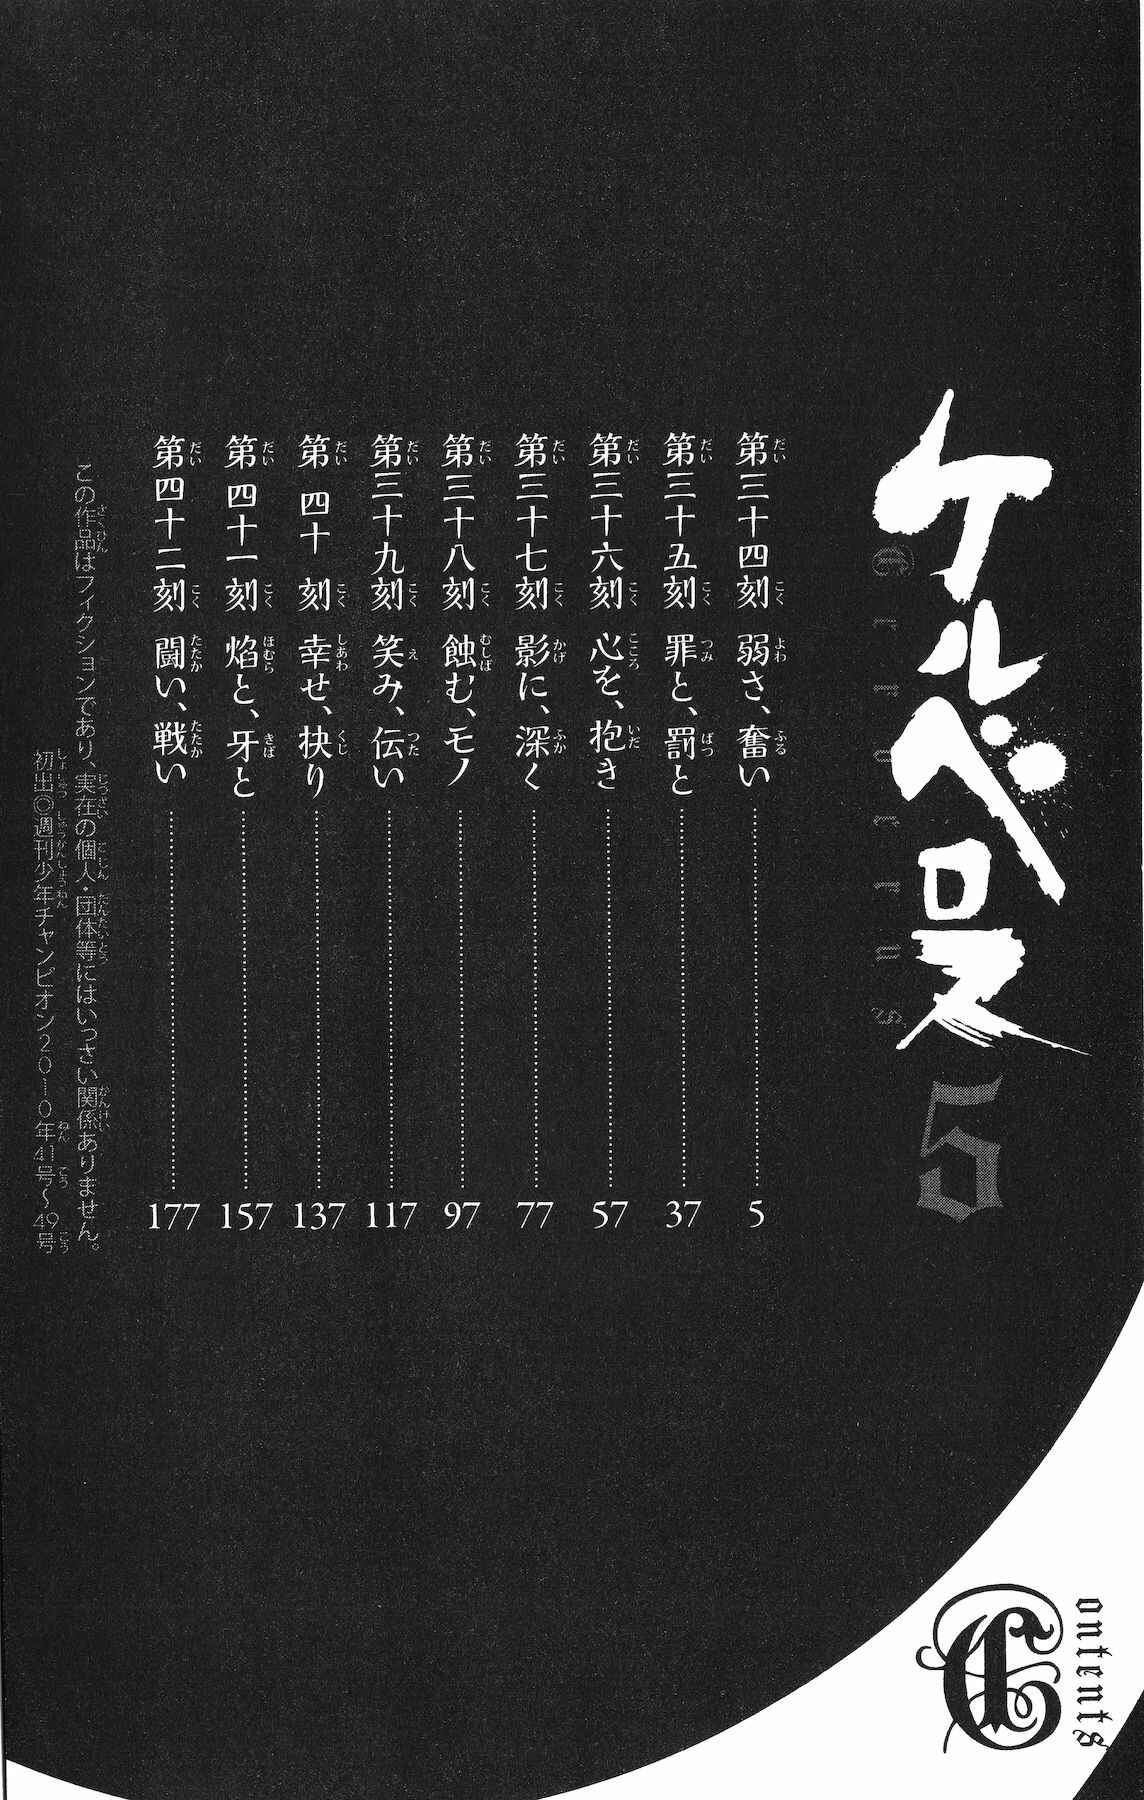 ケルベロス
Cerberus
5
第三十四刻 弱さ、奮い 5
第三十五刻 罪と、罰と 37
第三十六刻 心を、抱き 57
第三十七刻 影に、深く 77
第三十八刻 蝕む、モノ 97
第三十九刻 笑み、伝い 117
第四十刻 幸せ、抉り 137
第四十一刻 焰と、牙と 157
第四十二刻 闘い、戦い 177
この作品はフィクションであり、実在の個人・団体等にはいっさい関係ありません。
初出◎週刊少年チャンピオン2010年41号〜49号
Contents